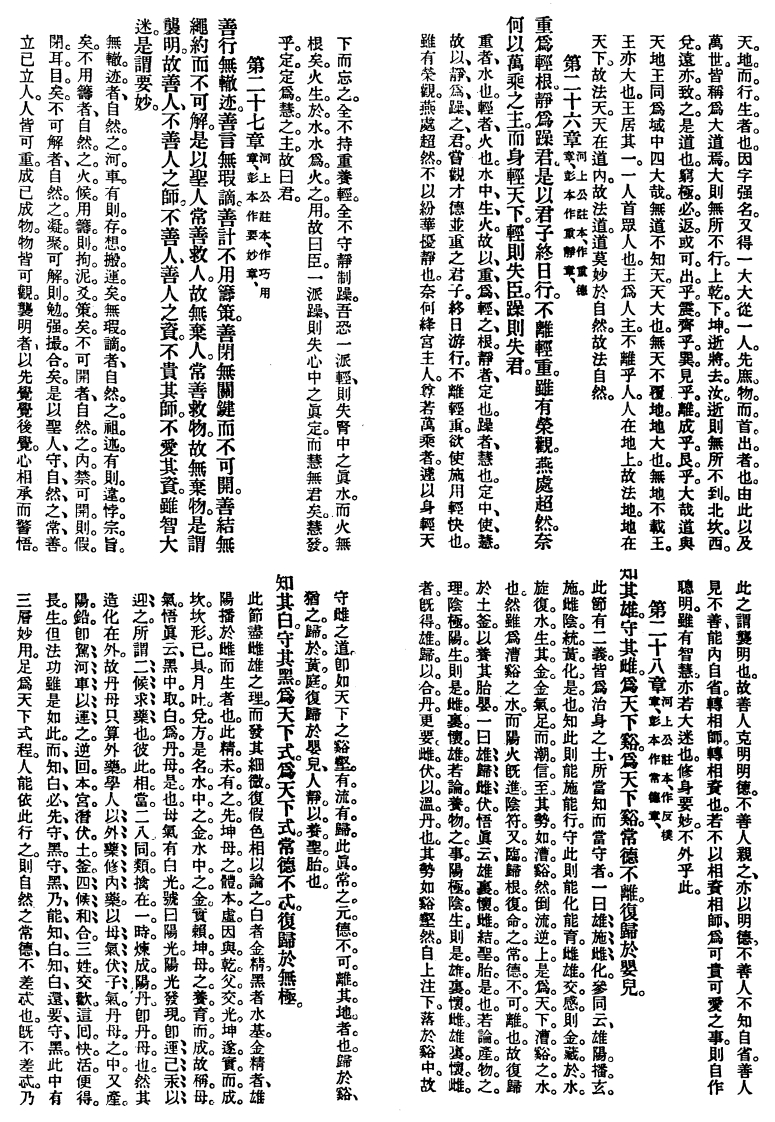 天。地而行。生者也。因字强名。又得一大。大從一人。先庶物而首出者也。由此以及
萬世。皆稱爲大道焉。大則無所不行。上乾下坤。逝將去汝。逝則無所不到。北坎西
兌。遠亦致之。是道也。窮極必返。或可出乎震。齊乎巽。見乎離。成乎艮乎。大哉道與
天地王。同爲域中四大哉。無道不知天。天大也。無天不覆地。地大也。無地不載王。
王亦大也。王居其一。一人首眾人也。王爲人主。不離乎人。人在地上。故法地。地在
天下。故法天。天在道內。故法道。道莫妙於自然。故法自然。
第二十六章 河上公註本、作重德章、彭本作重靜章、
重爲輕根。靜爲躁君。是以君子終日行。不離輕重。雖有榮觀。燕處超然。奈
何以萬乘之主。而身輕天下。輕則失臣。躁則失君。
重者、水也。輕者、火也。水中生火。故以重爲輕之根。靜者、定也。躁者、慧也。定中使慧。
故以靜爲躁之君。嘗觀才德並重之君子。終日游行。不離輕重。欲使施用輕快也。
雖有榮觀。燕處超然。不以紛華擾靜也。奈何絳宮主人。尊若萬乘者。遽以身輕天
下而忘之。全不持重養輕。全不守靜制躁。吾恐一派輕。則失腎中之眞水。而火無
根矣。火生於水。水爲火之用。故曰臣。一派躁。則失心中之眞定。而慧無君矣。慧發
乎定。定爲慧之主。故曰君。
第二十七章 河上公註本、作巧用章、彭本作要妙章、
善行無轍迹。善言無瑕謫。善計不用籌策。善閉無關鍵而不可開。善結無
繩約而不可解。是以聖人常善救人。故無棄人。常善救物。故無棄物。是謂
襲明。故善人、不善人之師。不善人、善人之資。不貴其師。不愛其資。雖智大
迷。是謂要妙。
無轍迹者。自然之河車。有則存想搬運矣。無瑕謫者、自然之祖述。有則違悖宗旨
矣。不用籌者、自然之火候。用籌則拘泥爻策矣。不可開者、自然之內禁。可開則假
閉耳目矣。不可解者、自然之凝聚。可解則勉强撮合矣。是以聖人守自然之常善。
立己立人。人皆可重。成己成物。物皆可觀。襲明者、以先覺覺後覺。心相承而警悟。
此之謂襲明也。故善人克明明德。不善人親之、亦以明德。不善人不知自省。善人
見不善能內自省。轉相師、轉相資也。若不以相資相師、爲可貴可愛之事。則自作
聰明。雖有智慧。亦若大迷也。修身要妙。不外乎此。
第二十八章 河上公註本、作反樸章、彭本作常德章、
知其雄。守其雌。爲天下谿。爲天下谿。常德不離。復歸於嬰兒。
此節有二義。皆爲治身之士、所當知而當守者。一曰雄施雌化。參同云。雄陽播玄
施。雌陰統黃化是也。知此則能施能行。守此則能化能育。雌雄交感。則金藏於水。
旋復水生其金。金氣足而潮信至。其勢如漕谿然。倒流逆上。是爲天下漕谿之水。
也。然雖爲漕谿之水。而陽火旣進。陰符又臨。歸根復命之常德。不可離也。故復歸
於土釜以養其胎嬰。一曰雄歸雌伏。悟眞云。雄裏懷雌結聖胎是也。若論產物之
理。陰極陽生。則是雌裏懷雄。若論養物之事。陽極陰生。則是雄裏懷雌。雄裏懷雌
者。旣得雄歸以合丹。更要雌伏以溫丹也。其勢如谿壑然。自上注下。落於谿中。故
守雌之道。卽如天下之谿壑。有流有歸。此眞常之元德。不可離其地者也。歸於谿、
猶之歸於黃庭。復歸於嬰兒。人靜以養聖胎也。
知其白。守其黑。爲天下式。爲天下式。常德不忒。復歸於無極。
此節盡雌雄之理。而發其細微。復假色相以論之。白者金精。黑者水基。金精者、雄
陽播於雌而生者也。此精未有之先。坤母之體本虛。因與乾父交光。坤遂實而成
坎。坎形已具。月吐兌方。是名水中之金。水中之金。實賴坤母之養育而成。故稱母
氣。悟眞云。黑中取白爲丹母是也。母氣有白光。號曰陽光。陽光發現。卽運己汞以
迎之。所謂二候求藥也。彼此相當。二八同類。擒在一時。煉成陽丹。卽丹母也。然其
造化在外。故丹母只算外藥。學人以外藥修內藥。以母氣伏子氣。丹母之中。又產
陽鉛。卽駕河車以運之。逆回本宮。潛伏土釜。四候和合。三姓交歡。這回快活。便得
長生。但法功雖是如此。而知白必先守黑。守黑乃能知白。知白還要守黑。此中有
三層妙用。足爲天下式程。人能依此行之。則自然之常德、不差忒也。旣不差忒。乃